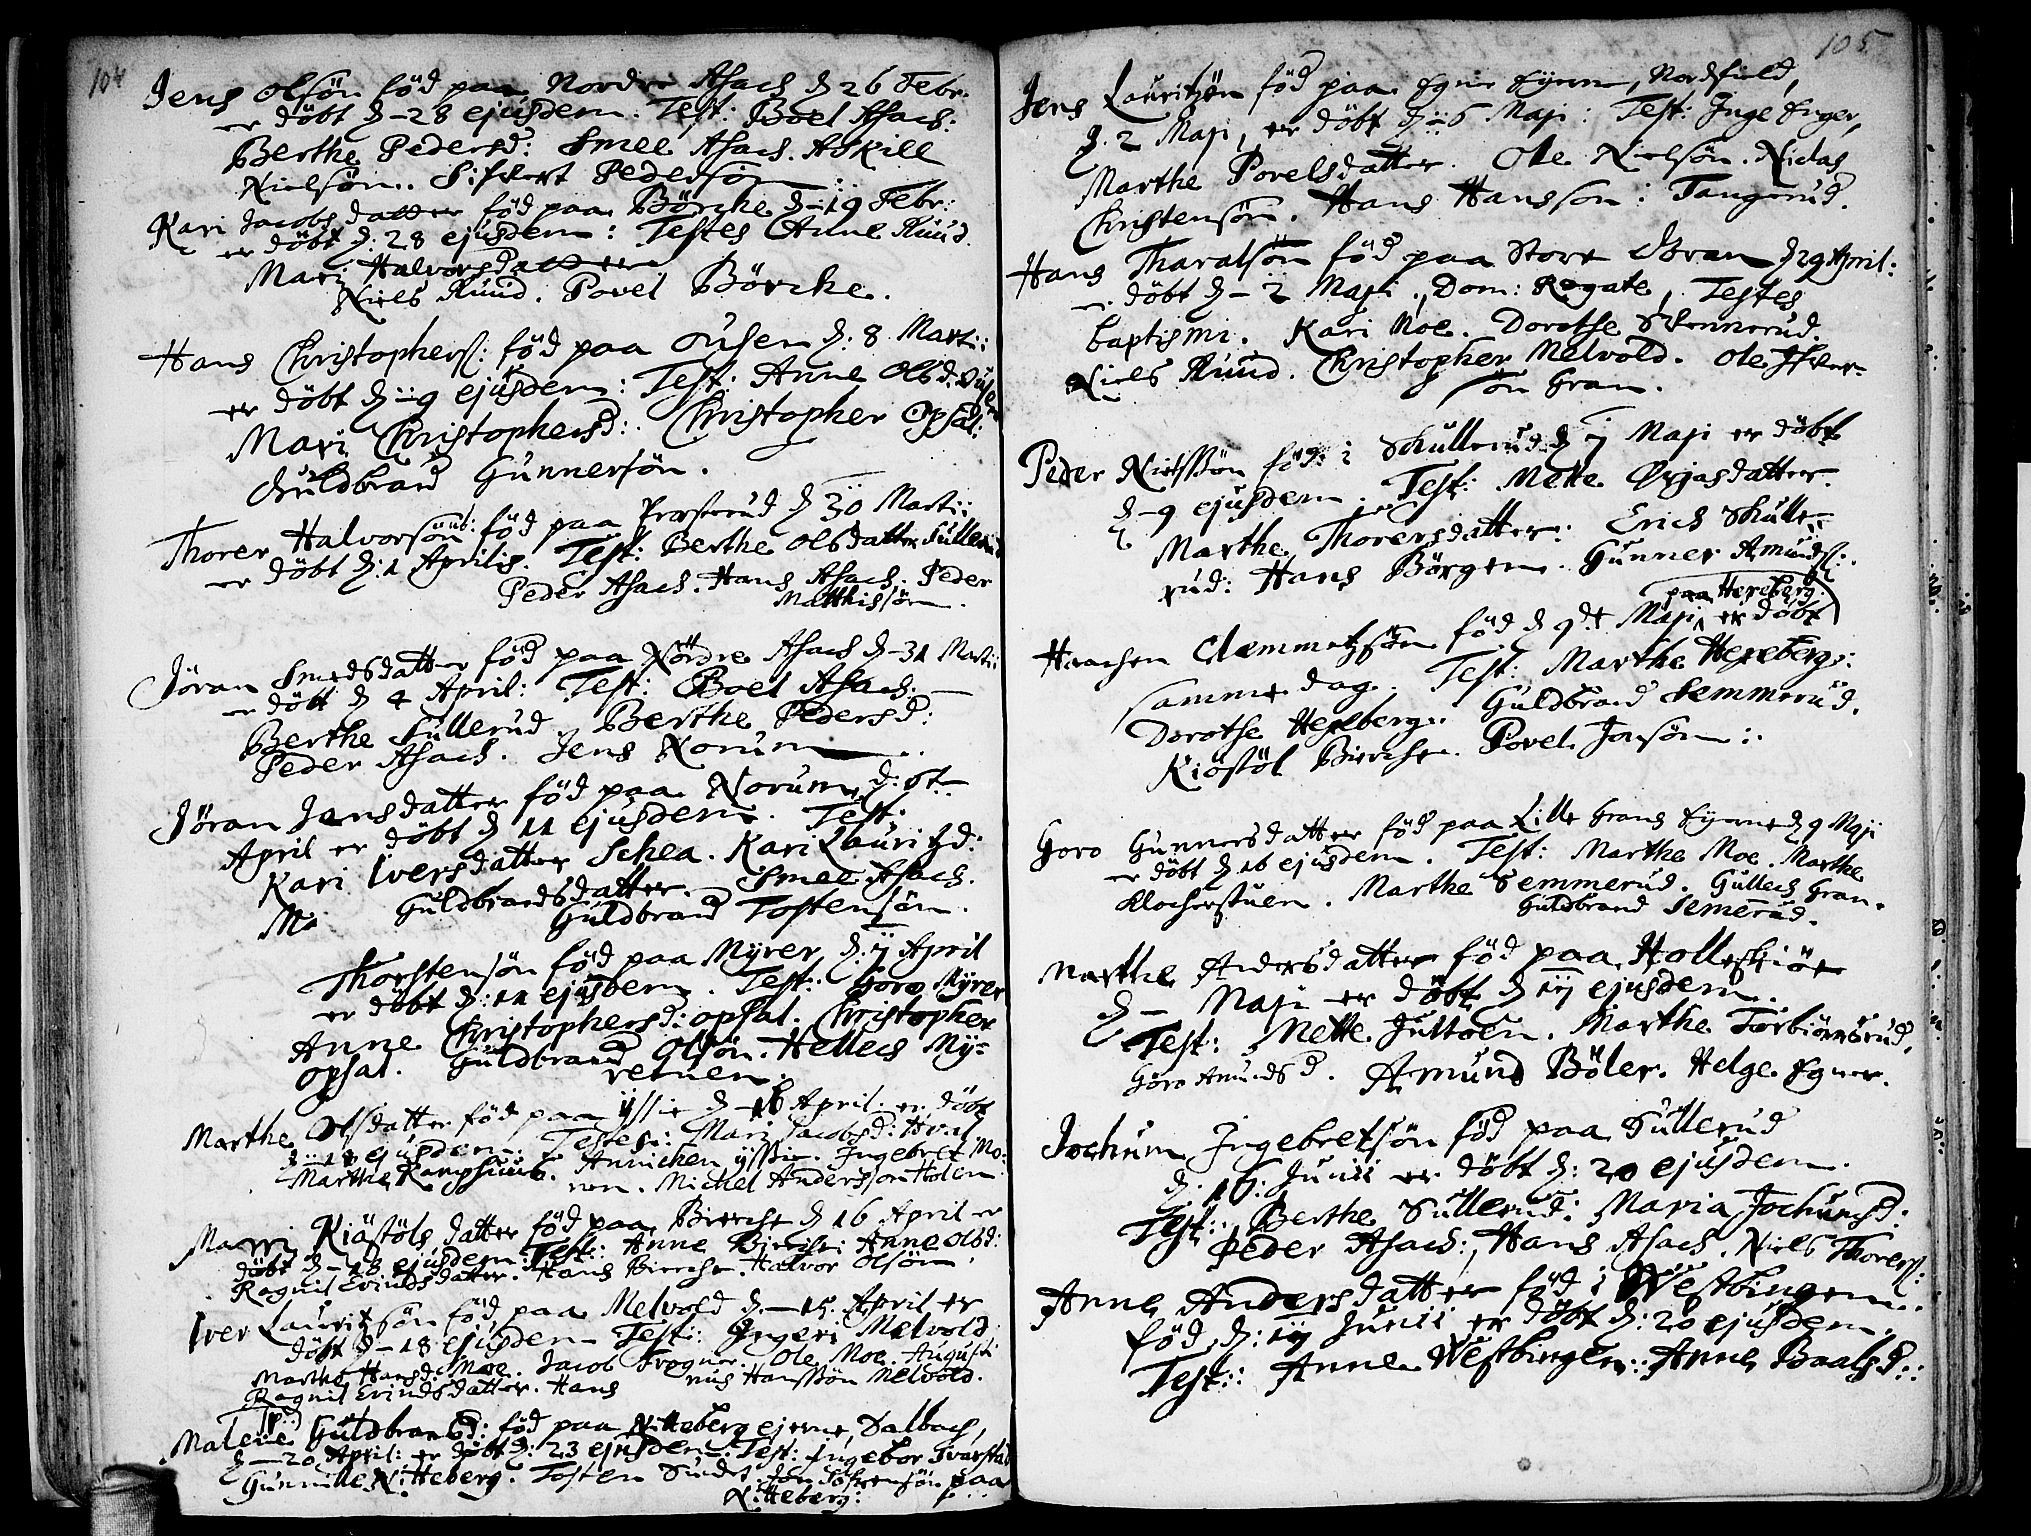 104
Jens Olsön föd paa Nordre Asach d 26 Febr.
er döbt d - 28 ejusdem. Test: Boel Asach.
Berthe Pedersd: Smee Asach. Askill
Nielsön. Sifvert Pedersön
Kari Jacobs datter föd paa Börche d - 19 Febr:
er döbt d. 28 ejusdem: Testes Anne Ruud.
Mari Halvorsdatter
Niels Ruud. Povel Börche.
Hans Christophers: föd paa Ousen d. 8 Martii
er döbt d 19 ejusdem: Test: Anne Olsd:
Mari Christophersd: Christopher Opsal:
Guldbrand Gunnersön.
Thorer Halvorsön: föd paa d 30 Martii
er döbt d. 1 Aprilis. Test: Berthe Olsdatter Sullerud
Peder Asach. Hans Asach. Peder
Matthissön.
Jöran Smedsdatter föd paa Nördre Asach d - 31 Martii
er döbt d 4 April: Test: Boel Asach.
Berthe Sullerud Berthe Pedersd:
Peder Asach. Jens Norum
Jöran Jensdatter föd paa Norum, d:
April er döbt d 11 ejusdem. Test:
Kari Iversdatter Schea. Kari Lauritzd:
Guldbrandsdatter. Smee Asach.
Guldbrand Tostensön.
Thorstensön föd paa Myrer, d: 7 April
er döbt d: 11 ejusdem. Test: Goro Myrer
Anne Christophersd: Opsal. Christopher
Opsal. Guldbrand Olsön. Hellech My-
rernen.
Marthe Olsdatter föd paa ÿssie d - 16 April er döbt
d 18 ejusdem: Testes: Mari Jacobsd: Hval
Marthe Annichen ÿssie. Ingebret Mo-
nen. Michel Andersson Holen
Marri Kiöstöls datter föd paa Bierche d 16 April er
döbt d - 18 ejusdem Test: Anne Bierche Anne Olsd:
Ragnil Evindsdatter. Hans Bierche. Halvor Olsön.
Iver Lauritzsön föd paa Melvold d - 15 April er
döbt d - 18 ejusdem Test: Ingeri Melvold
Marthe Hansd: Moe. Jacob Frogner. Ole Moe. Augusti
Ragnil Evindsdatter. Hans nus Hanssön Melvold.
Malene Guldbrandsd: föd paa Nitteberg ejerne, Dalbach,
d - 20 April: er döbt d: 23 ejusdem Test: Ingebor Svarstad
Gunnille Nitteberg. Tosten Sundet. Jon paa
Nitteberg:
105
Jens Lauritzön föd paa Egner Eyerne, Nordfield,
d. 2 Maji, er döbt d - 6 Maji: Test: Inge Enger,
Marthe Povelsdatter. Ole Nielsön. Niclas
Christensön. Hans Hansson: Tangerud.
Hans Tharalsön föd paa Store Gran d 29 April:
er döbt d - 2 Maji, Dom: Rogate, Testes
baptismi. Kari Moe. Dorothe Skennerud.
Niels Ruud. Christopher Melvold. Ole Ifver-
sön Gran.
Peder Nielssön föd i Skullerud d 7 Maji er döbt
d - 9 ejusdem. Test: Mette Ørjasdatter.
Marthe Thorersdatter: Erich Skulle-
rud: Hans Börgen. Gunner Amunds:
paa Hexeberg
Haachen Clemmetzsön föd d 9de Maji er döbt
samme dag. Test: Marthe Hexeberg:
Dorothe Hexberg: Guldbrand Semmerud.
Kiöstöl Bierche. Povel Jonsön:
Goro Gunnersdatter föd paa Lille Grans Eyerne d 9 Maji
er döbt d 16 ejusdem. Test: Marthe Moe. Marthe
Klocherstuen. Marthe Semmerud. Gullech Gran.
Guldbrand Semerud.
Marthe Andersdatter föd paa Holleskiör
d - Maji er döbt d 17 ejusdem.
Test: Mette Jultoen. Marthe Torbiörnsrud,
Goro Amunds d. Amund Böler. Helge Egner.
Jochum Ingebretsön föd paa Sullerud
d. 16. Junii er döbt d: 20 ejusdem.
Test: Berthe Sullerud: Maria Jochumsd:
Peder Asach: Hans Asach. Niels Thorers:
Anne Andersdatter föd i Westbingen
föd, d: 17 Junii er döbt d: 20 ejusdem.
Test: Anne Westbingen: Anne Baalsd: